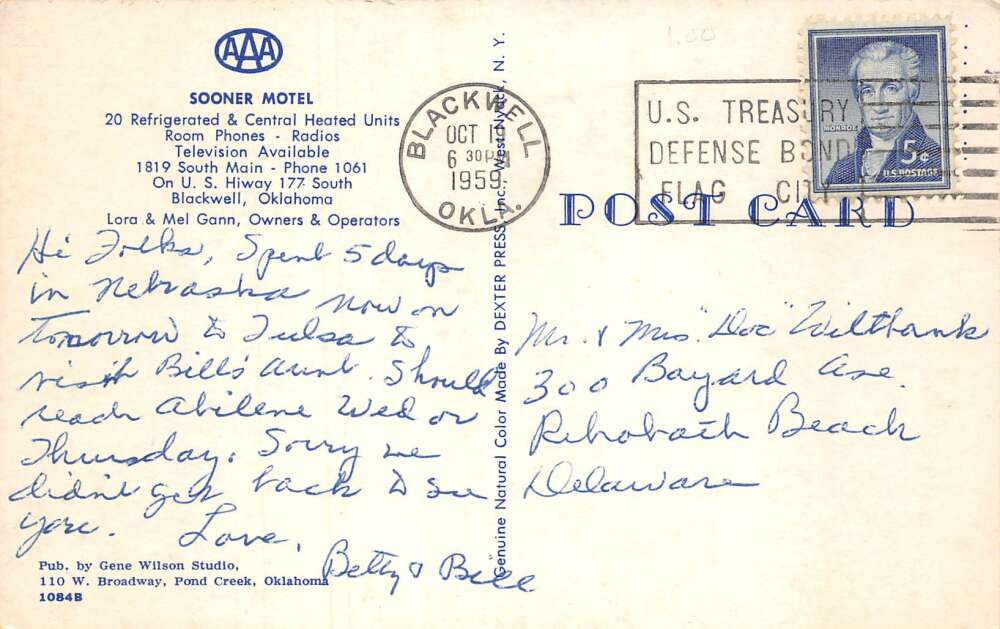 AAA
SOONER MOTEL
20 Refrigerated & Central Heated Units
Room Phones - Radios
Television Available
1819 South Main - Phone 1061
On U. S. Hiway 177 South
Blackwell, Oklahoma
Lora & Mel Gann, Owners & Operators
Hi Folks, Spent 5 days
in Nebraska now on
tomorrow to Tulsa to
visit Bill's Aunt. Should
reach Abilene Wed or
Thursday. Sorry we
didn't get back to see
you. Love,
Betty & Bill
Pub. by Gene Wilson Studio,
110 W. Broadway, Pond Creek, Oklahoma
1084B
Genuine Natural Color Made By DEXTER PRESS, Inc., West Nyack, N. Y.
BLACKWELL
OCT
6 30 PM
1959
OKLA.
1.00
U.S. TREASURY
DEFENSE BOND
FLAG CITY
MONROE
5¢
U.S. POSTAGE
POST CARD
Mr. & Mrs. "Doc" Wiltbank
300 Bayard Ave.
Rehobath Beach
Delaware